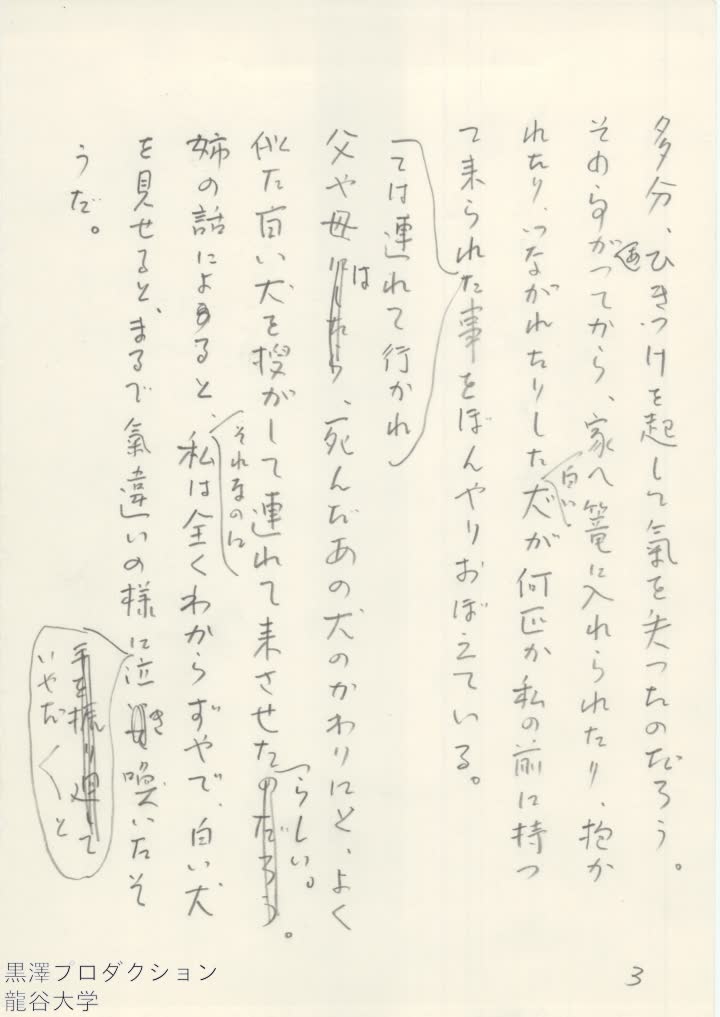 多分、ひきつけを起して氣を失つたのだろう。
過
その事がつてから、家へ篭に入れられたり、抱か
れたり、つながれたりした犬が何匹か私の前に持つ
白い
て来られた事をぼんやりおぼえている。
ては連れて行かれ
父や母にしたら、死んだあの犬のかわりにと、よく
は
似た白い犬を探がして連れて来させたのだろう。
らしい。
姉の話によると、私は全くわからずやで、白い犬
それなのに
を見せると、まるで氣違いの様に泣き喚いたそ
手を振り廻して
いやだ〱と
うだ。
3
黒澤プロダクション
龍谷大学